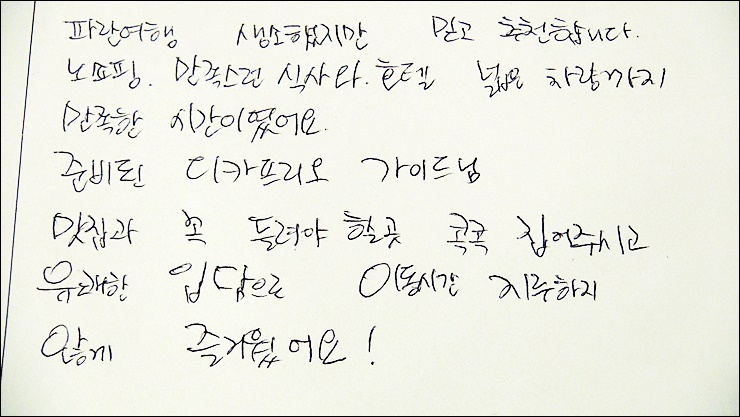 파란여행 생소했지만 믿고 추천합니다.
노쇼핑. 만족스런 식사와. 호텔 넓은 차량까지
만족한 시간이었어요.
준비된 디카프리오 가이드님
맛집과 꼭 들려야 할곳 콕콕 집어주시고
유쾌한 입담으로 이동시간 지루하지
않게 즐거웠어요!